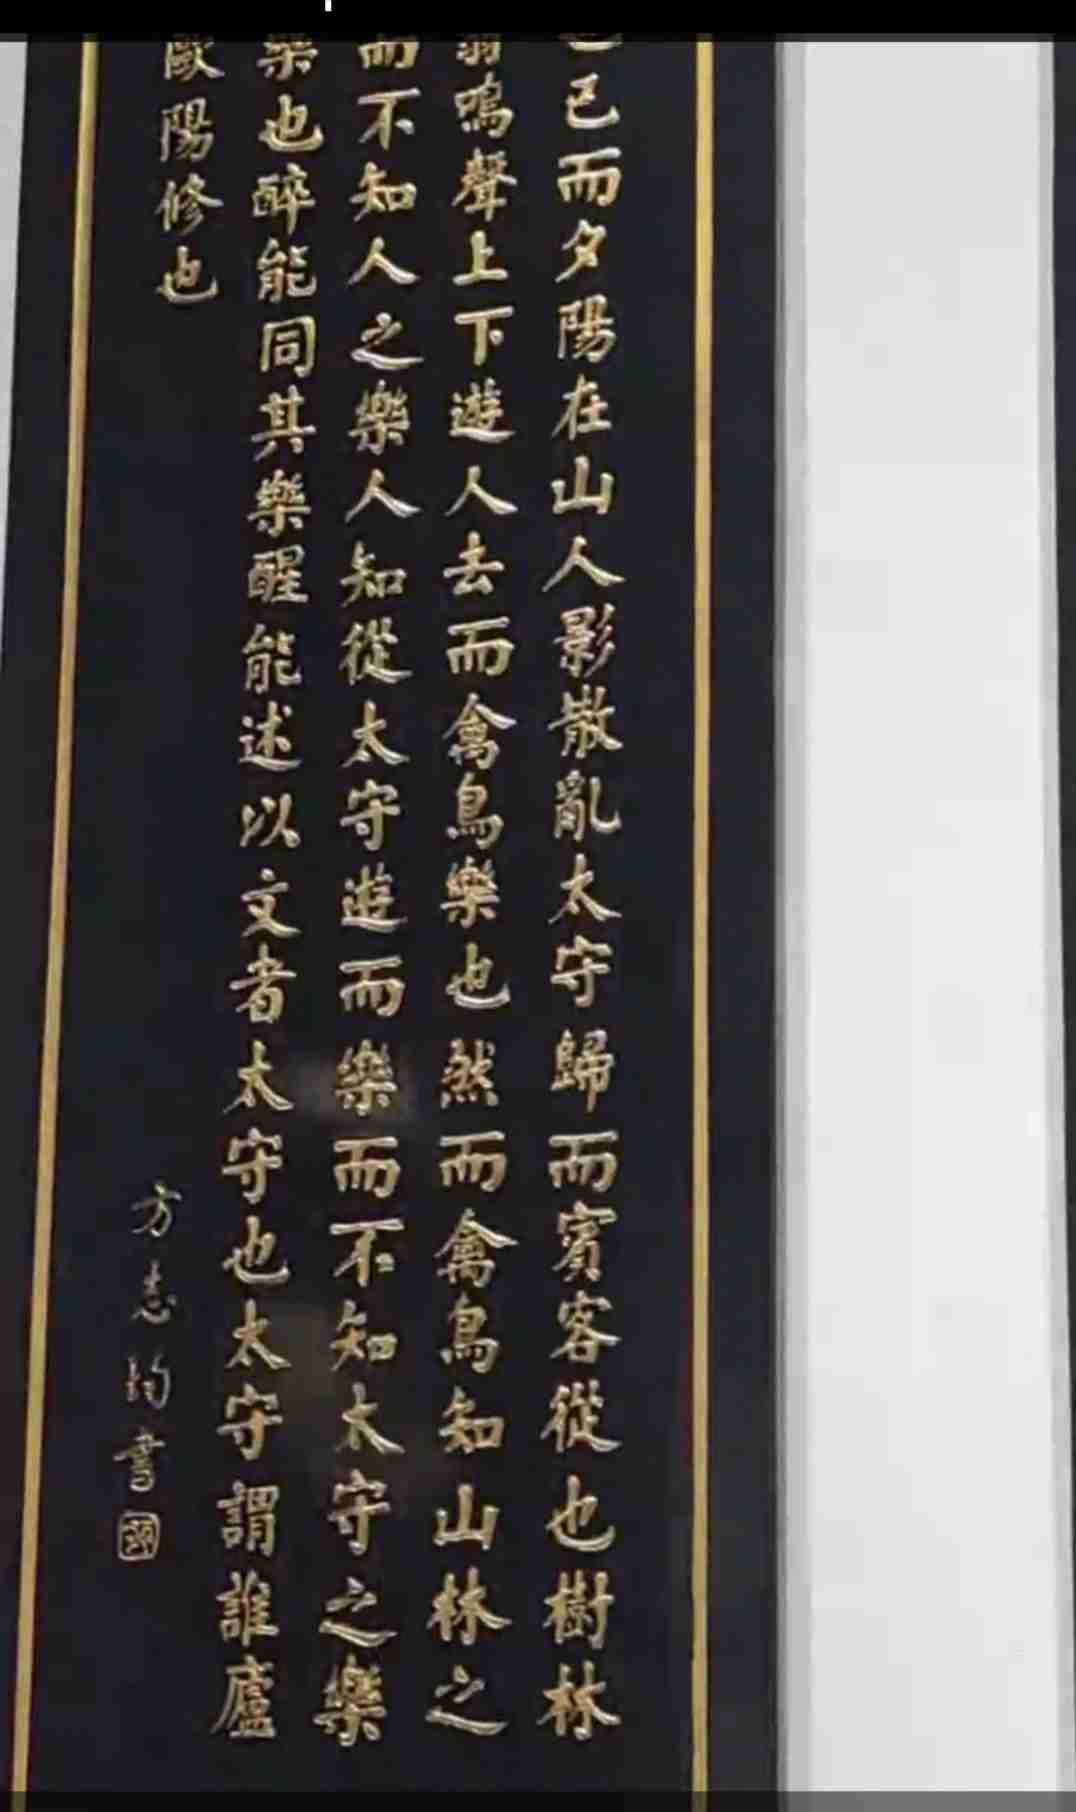 也已而夕陽在山人影散亂太守歸而賓客從也樹林
翳鳴聲上下遊人去而禽鳥樂也然而禽鳥知山林之
而不知人之樂人知從太守遊而樂而不知太守之樂
樂也醉能同其樂醒能述以文者太守也太守謂誰廬
歐陽修也
方志均書